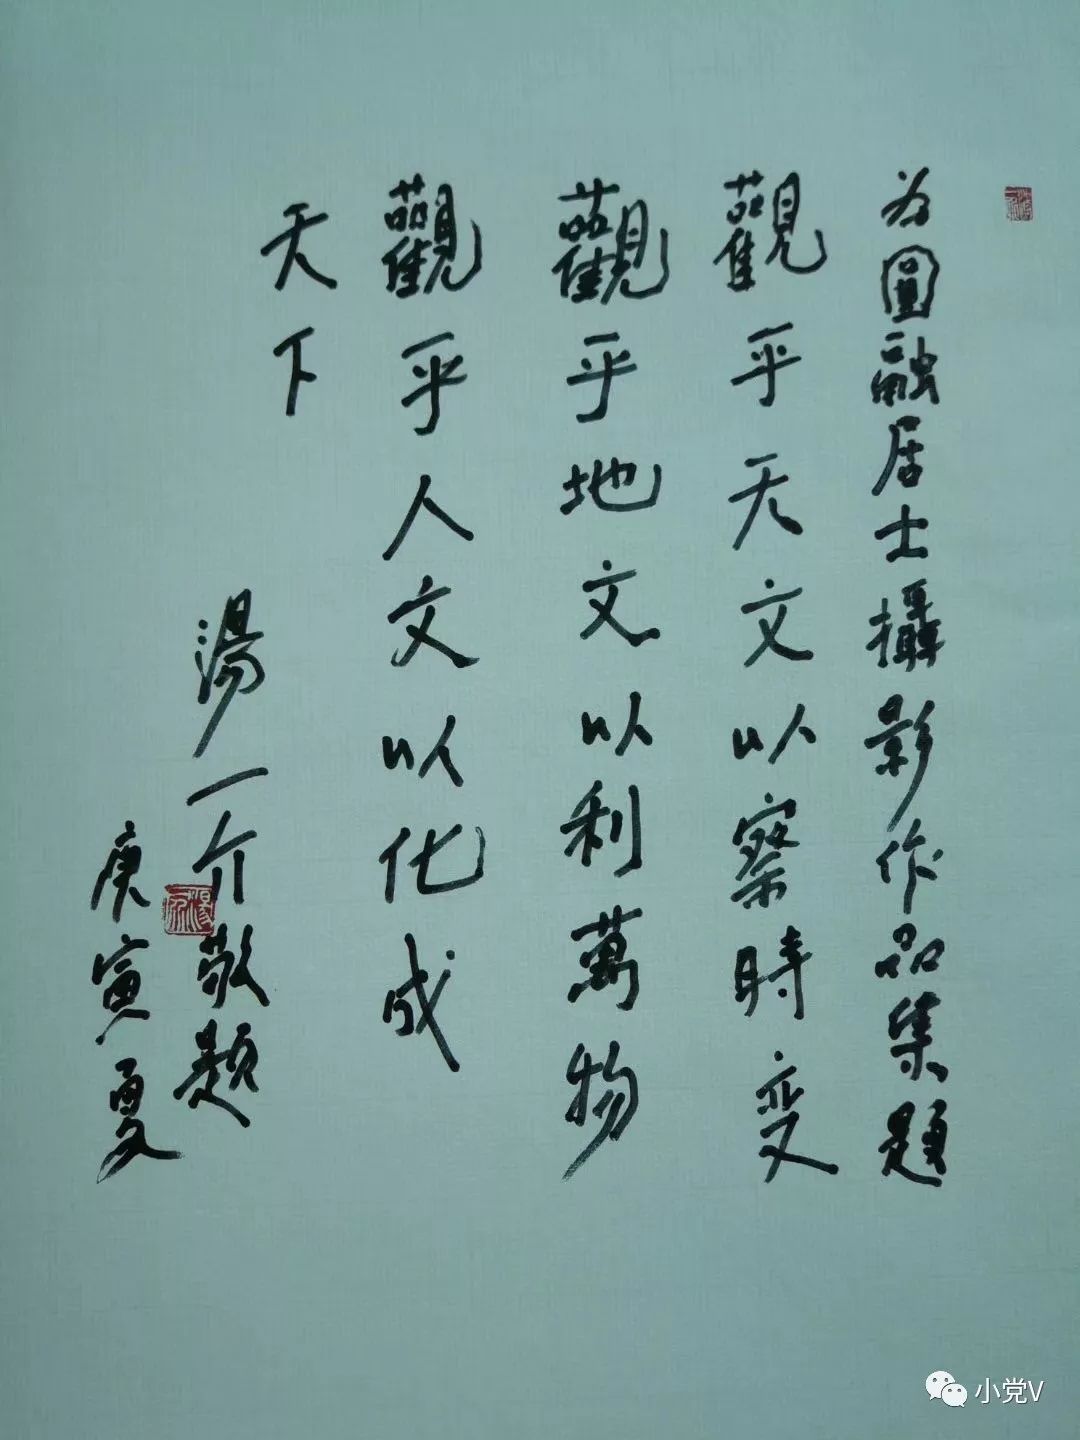 为圓融居士攝影作品集題
觀乎天文以察時变
觀乎地文以利萬物
觀乎人文以化成
天下
湯一介敬題
庚寅夏
小党V